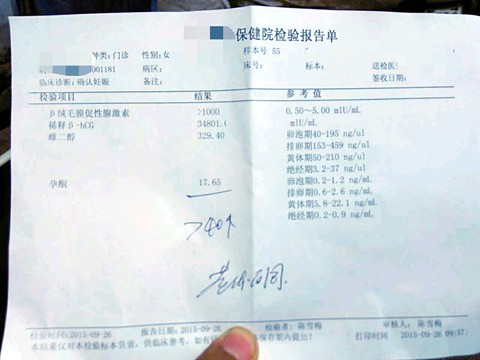 保健院检验报告单
种类:门诊 性别:女 样本号 55
001181 病区: 床号: 标本: 送检医
临床诊断:确认妊娠 备注: 签收日期:
检验项目 结果 参考值
β绒毛膜促性腺激素 >1000 0.50~5.00 mIU/mL
稀释β-hCG 34801.( mIU/mL
雌二醇 329.40 卵泡期40-195 ng/ul
排卵期153-459 ng/ul
黄体期50-210 ng/ul
绝经期3.2-37 ng/ul
孕酮 17.65 卵泡期0.2-1.2 ng/mL
排卵期0.6-2.6 ng/mL
黄体期5.8-22.1 ng/mL
绝经期0.2-0.9 ng/mL
>40
检验时间:2015-09-26 报告日期:2015-09-26 检验者: 陈雪梅 审核人: 陈雪梅
本结果仅对本检验标本负责, 供临床参考。如有疑 保存期内提出! 打印时间 2015-09-26 09:57: